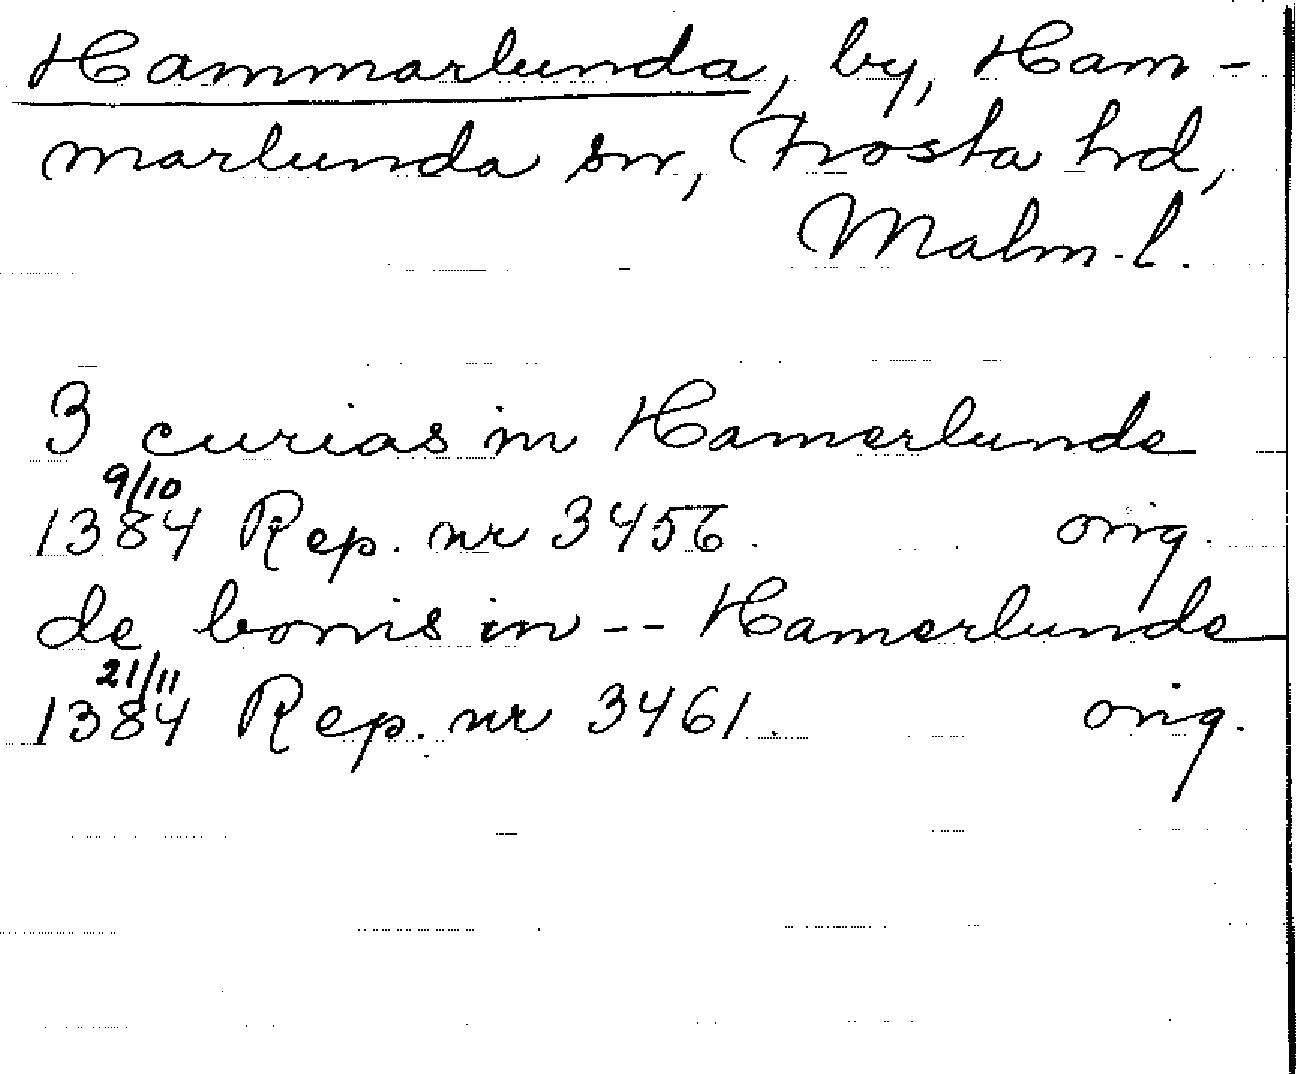 Hammarlunda, by, Ham-
marlunda sn, Frosta hd,
Malm. l.
3 curias in Hamerlunde
9/10
1384 Rep. nr 3456. orig.
de bonis in -- Hamerlunde
21/11
1384 Rep. nr 3461. orig.